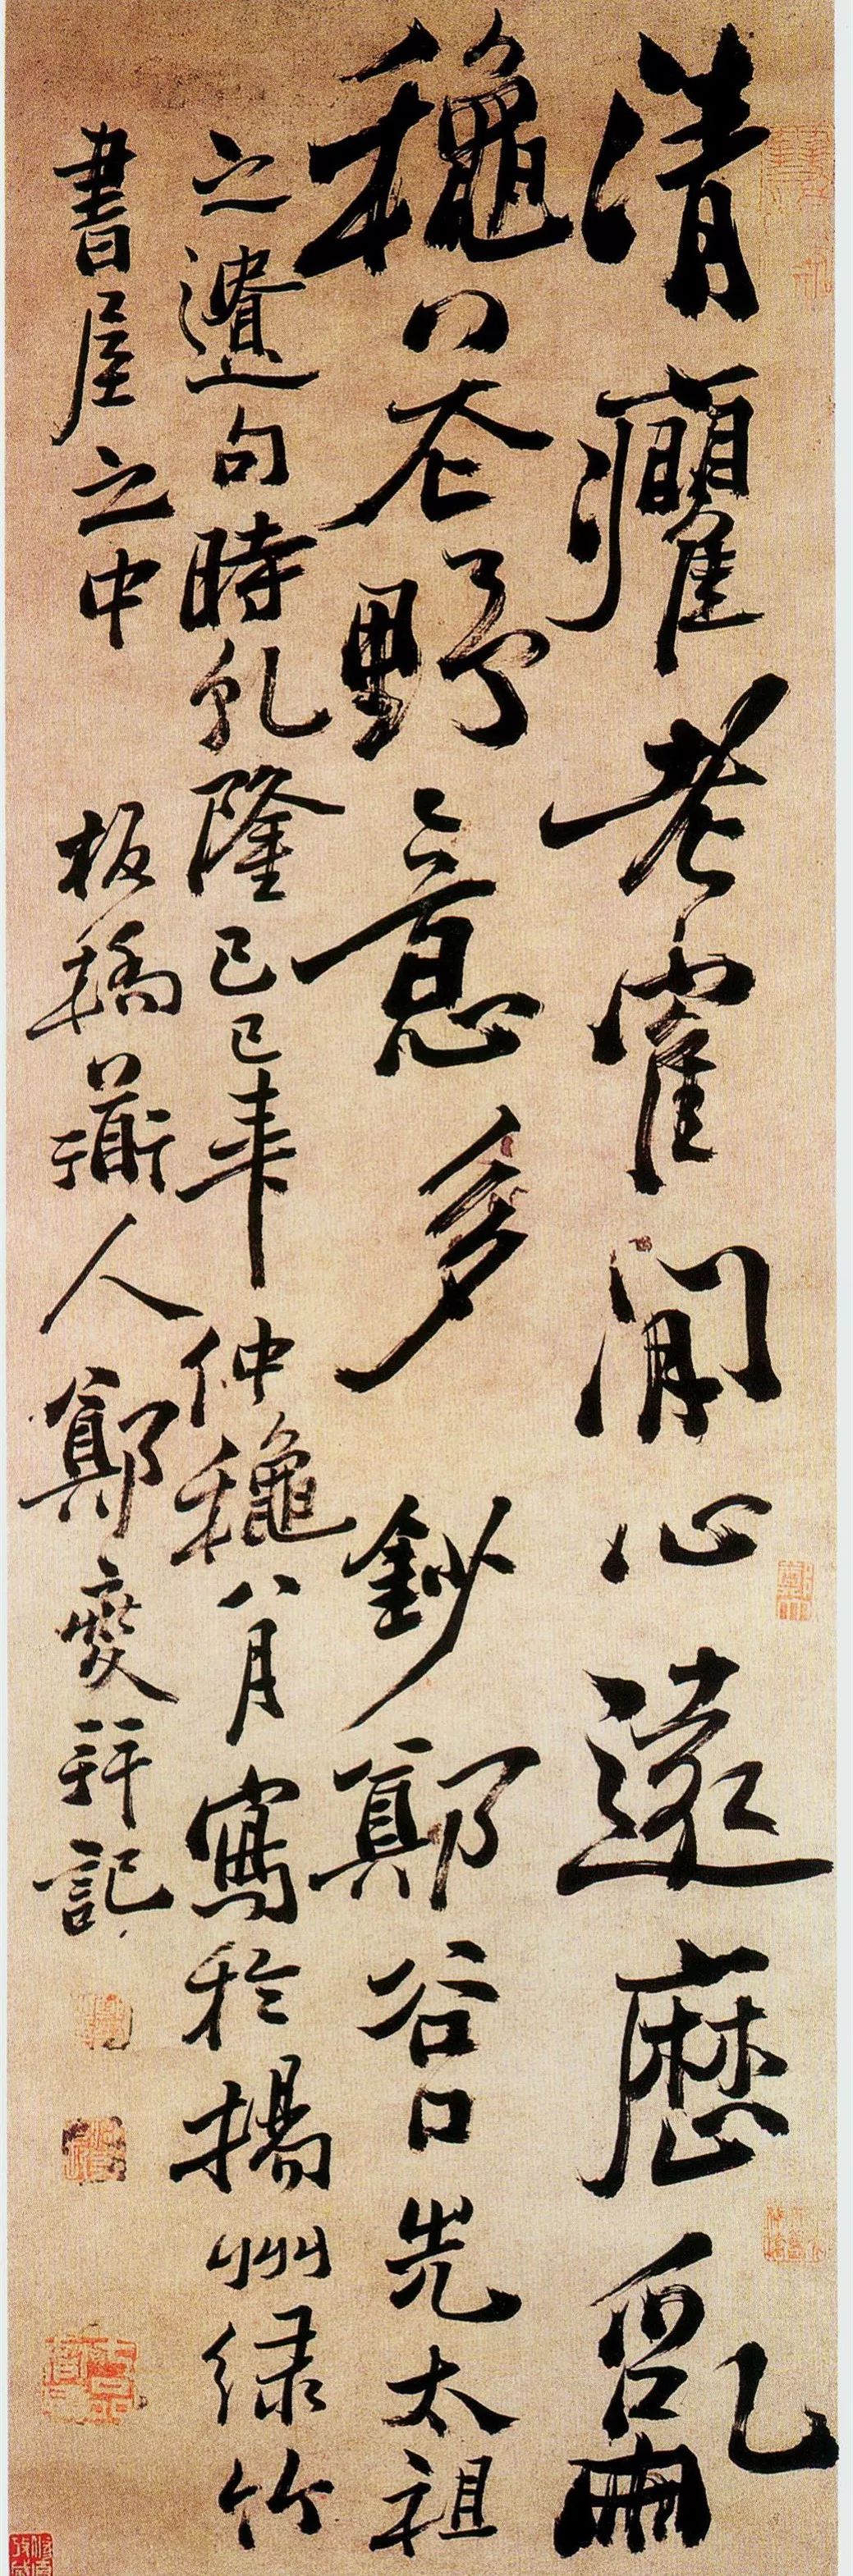 清癯老寉閒心遠歷亂
龝花野意多 鈔鄭谷口先太祖
之遺句時乾隆己巳年仲龝八月寫於揚州绿竹
書屋之中 板橋道人鄭燮拜記